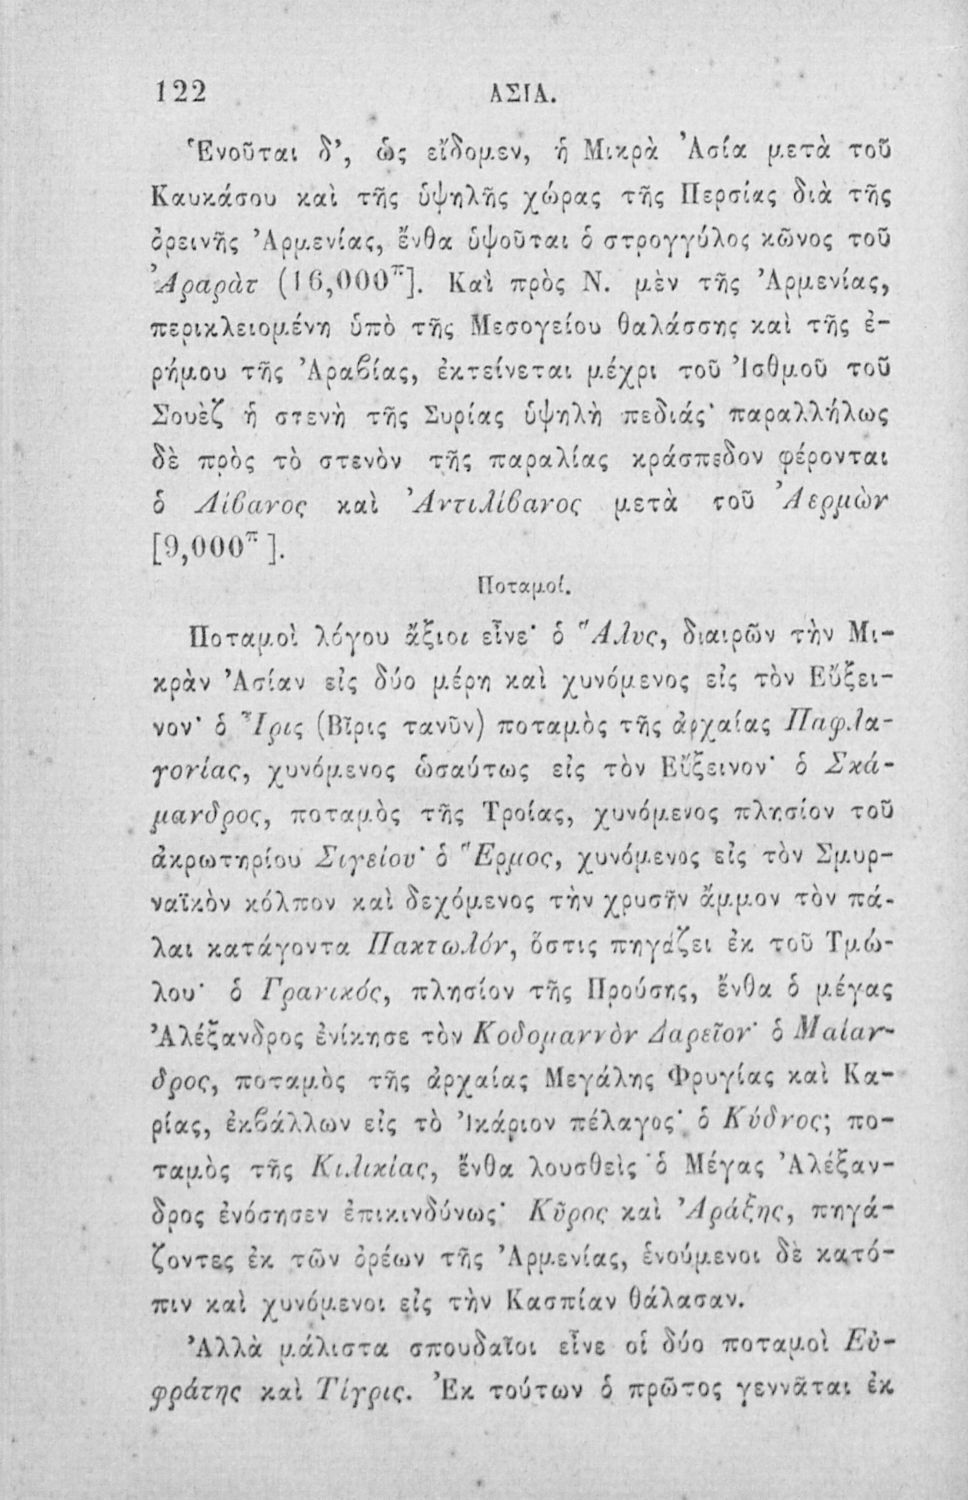 122 ΑΣΙΑ.
Ἑνοῦται δ', ὡς εἴδομεν, ἡ Μικρὰ Ἀσία μετὰ τοῦ
Καυκάσου καὶ τῆς ὑψηλῆς χώρας τῆς Περσίας διὰ τῆς
ὀρεινῆς Ἀρμενίας, ἔνθα ὑψοῦται ὁ στρογγύλος κῶνος τοῦ
Ἀραρὰτ (16,000π]. Καὶ πρὸς Ν. μὲν τῆς Ἀρμενίας,
περικλειομένη ὑπὸ τῆς Μεσογείου θαλάσσης καὶ τῆς ἐ-
ρήμου τῆς Ἀραβίας, ἐκτείνεται μέχρι τοῦ Ἰσθμοῦ τοῦ
Σουὲζ ἡ στενὴ τῆς Συρίας ὑψηλὴ πεδιάς· παραλλήλως
δὲ πρὸς τὸ στενὸν τῆς παραλίας κράσπεδον φέρονται
ὁ Λίβανος καὶ Ἀντιλίβανος μετὰ τοῦ Ἀερμὼν
[9,000π].
Ποταμοί.
Ποταμοὶ λόγου ἄξιοι εἶνε· ὁ Ἅλυς, διαιρῶν τὴν Μι-
κρὰν Ἀσίαν εἰς δύο μέρη καὶ χυνόμενος εἰς τὸν Εὔξει-
νον· ὁ Ἶρις (Βῖρις τανῦν) ποταμὸς τῆς ἀρχαίας Παφλα-
γονίας, χυνόμενος ὡσαύτως εἰς τὸν Εὔξεινον· ὁ Σκά-
μανδρος, ποταμὸς τῆς Τροίας, χυνόμενος πλησίον τοῦ
ἀκρωτηρίου Σιγείου· ὁ Ἕρμος, χυνόμενος εἰς τὸν Σμυρ-
ναϊκὸν κόλπον καὶ δεχόμενος τὴν χρυσῆν ἄμμον τὸν πά-
λαι κατάγοντα Πακτωλόν, ὅστις πηγάζει ἐκ τοῦ Τμώ-
λου· ὁ Γρανικός, πλησίον τῆς Προύσης, ἔνθα ὁ μέγας
Ἀλέξανδρος ἐνίκησε τὸν Κοδομαννὸν Δαρεῖον· ὁ Μαίαν-
δρος, ποταμὸς τῆς ἀρχαίας Μεγάλης Φρυγίας καὶ Κα-
ρίας, ἐκβάλλων εἰς τὸ Ἰκάριον πέλαγος· ὁ Κύδνος; πο-
ταμὸς τῆς Κιλικίας, ἔνθα λουσθεὶς ὁ Μέγας Ἀλέξαν-
δρος ἐνόσησεν ἐπικινδύνως· Κῦρος καὶ Ἀράξης, πηγά-
ζοντες ἐκ τῶν ὀρέων τῆς Ἀρμενίας, ἑνούμενοι δὲ κατό-
πιν καὶ χυνόμενοι εἰς τὴν Κασπίαν θάλασαν.
Ἀλλὰ μάλιστα σπουδαῖοι εἶνε οἱ δύο ποταμοὶ Εὐ-
φράτης καὶ Τίγρις. Ἐκ τούτων ὁ πρῶτος γεννᾶται ἐκ